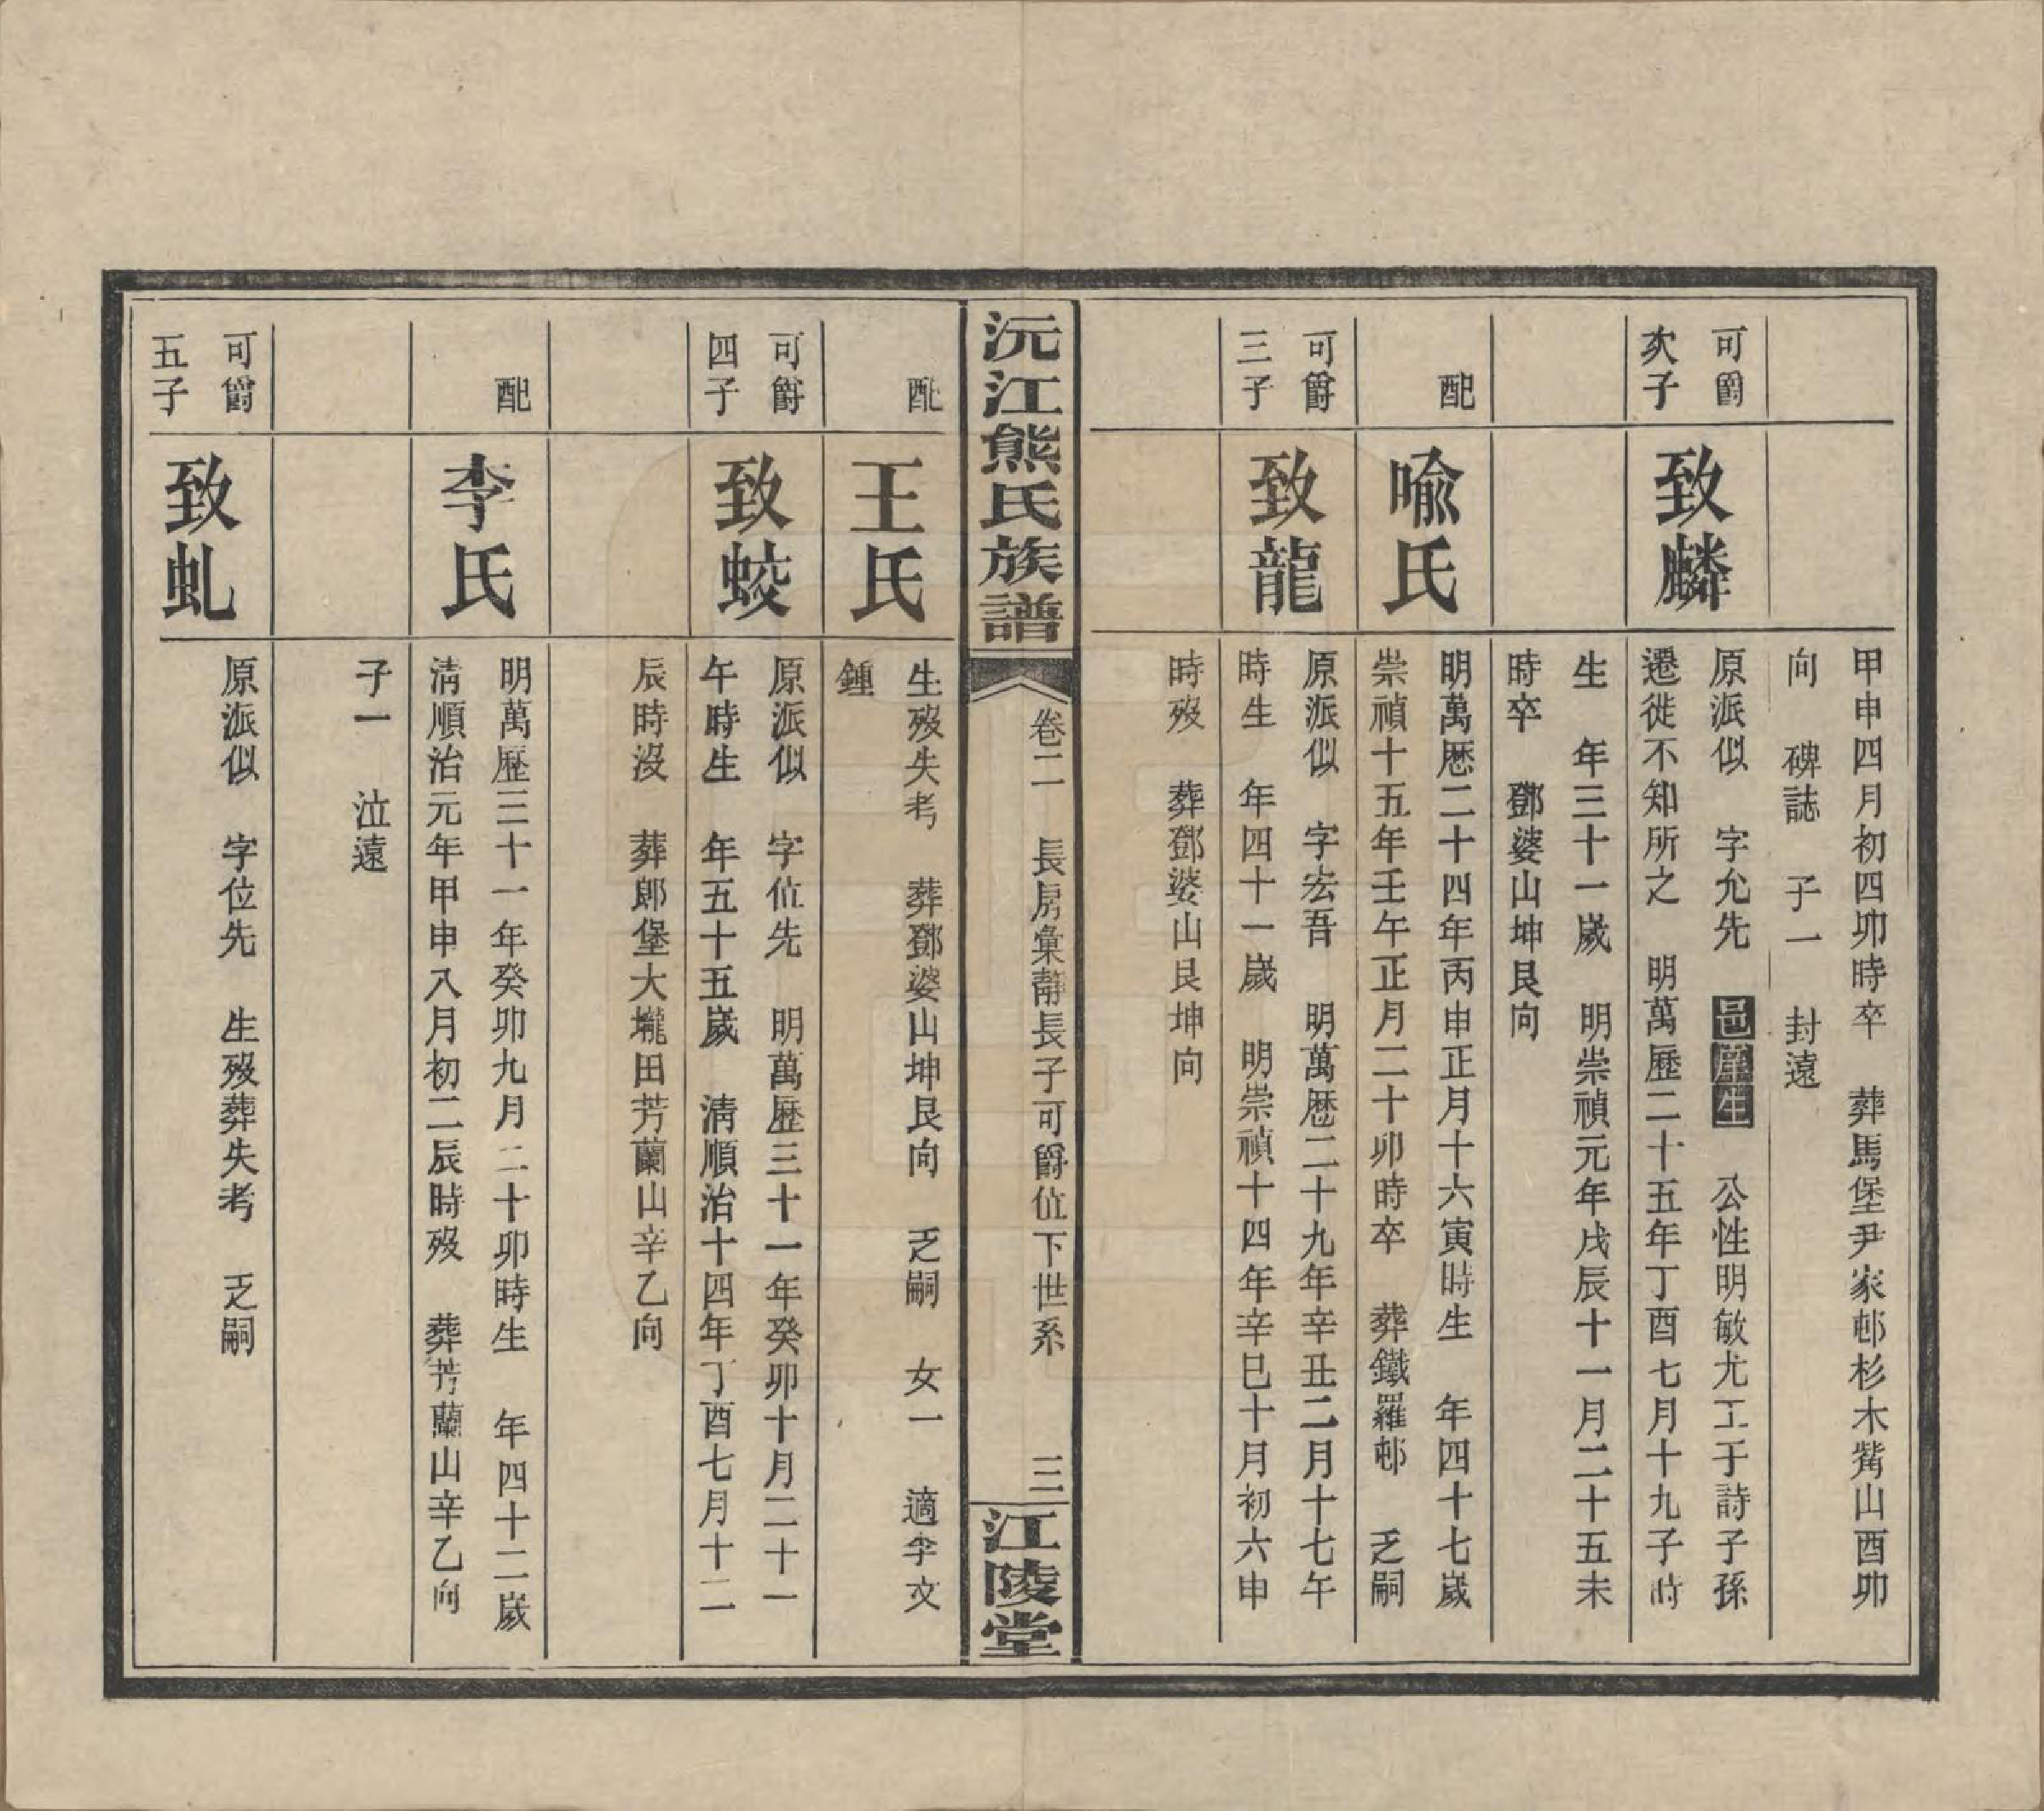 甲申四月初四卯時卒　葬馬堡尹家邨杉木觜山酉卯
向　碑誌　子一　封遠
可爵
次子
致麟
原派似　字允先　邑庠生　公性明敏尤工于詩子孫
遷徙不知所之　明萬歷二十五年丁酉七月十九子時
生　年三十一歲　明崇禎元年戊辰十一月二十五未
時卒　鄧婆山坤艮向
配
喻氏
明萬歷二十四年丙申正月十六寅時生　年四十七歲
崇禎十五年壬午正月二十卯時卒　葬鐵羅邨　乏嗣
可爵
三子
致龍
原派似　字宏吾　明萬歷二十九年辛丑二月十七午
時生　年四十一歲　明崇禎十四年辛巳十月初六申
時歿　葬鄧婆山艮坤向
沅江熊氏族譜
卷二　長房彙靜長子可爵位下世系　三
江陵堂
配
王氏
生歿失考　葬鄧婆山坤艮向　乏嗣　女一　適李文
鍾
可爵
四子
致蛟
原派似　字位先　明萬歷三十一年癸卯十月二十一
午時生　年五十五歲　清順治十四年丁酉七月十二
辰時沒　葬郎堡大壠田芳蘭山辛乙向
配
李氏
明萬歷三十一年癸卯九月二十卯時生　年四十二歲
清順治元年甲申八月初二辰時歿　葬芳蘭山辛乙向
子一　泣遠
可爵
五子
致虬
原派似　字位先　生歿葬失考　乏嗣